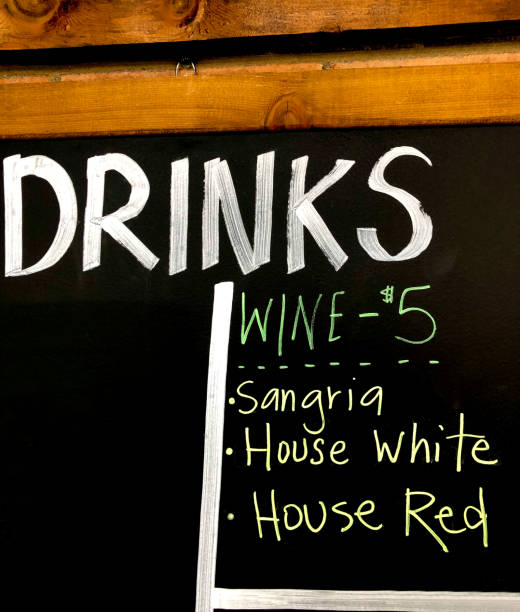 DRINKS
WINE - $5
• Sangria
• House White
• House Red